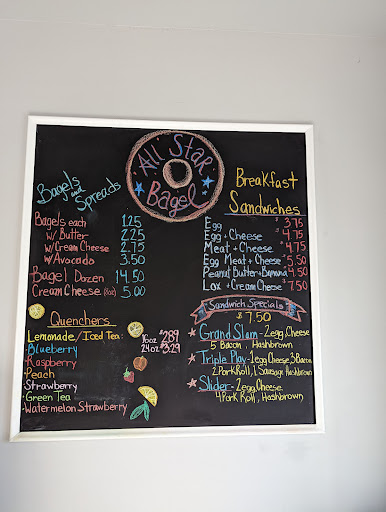 All Star
Bagel
Bagels
and
Spreads
Bagels each 1.25
w/ Butter 2.25
w/ Cream Cheese 2.75
w/ Avocado 3.50
Bagel Dozen 14.50
Cream Cheese (8oz) 5.00
Quenchers
Lemonade/Iced Tea:
16oz $2.89
24oz $3.29
·Blueberry
·Raspberry
·Peach
·Strawberry
·Green Tea
·Watermelon Strawberry
Breakfast
Sandwiches
Egg $3.75
Egg + Cheese $4.75
Meat + Cheese $4.75
Egg Meat + Cheese $5.50
Peanut Butter + Banana $4.50
Lox + Cream Cheese $7.50
Sandwich Specials
$7.50
Grand Slam - 2 egg, Cheese
5 Bacon, Hashbrown
Triple Play - 2 egg, Cheese, 3 Bacon
2 Pork Roll, 1 Sausage Hashbrown
Slider - 2 egg, Cheese
4 Pork Roll, Hashbrown